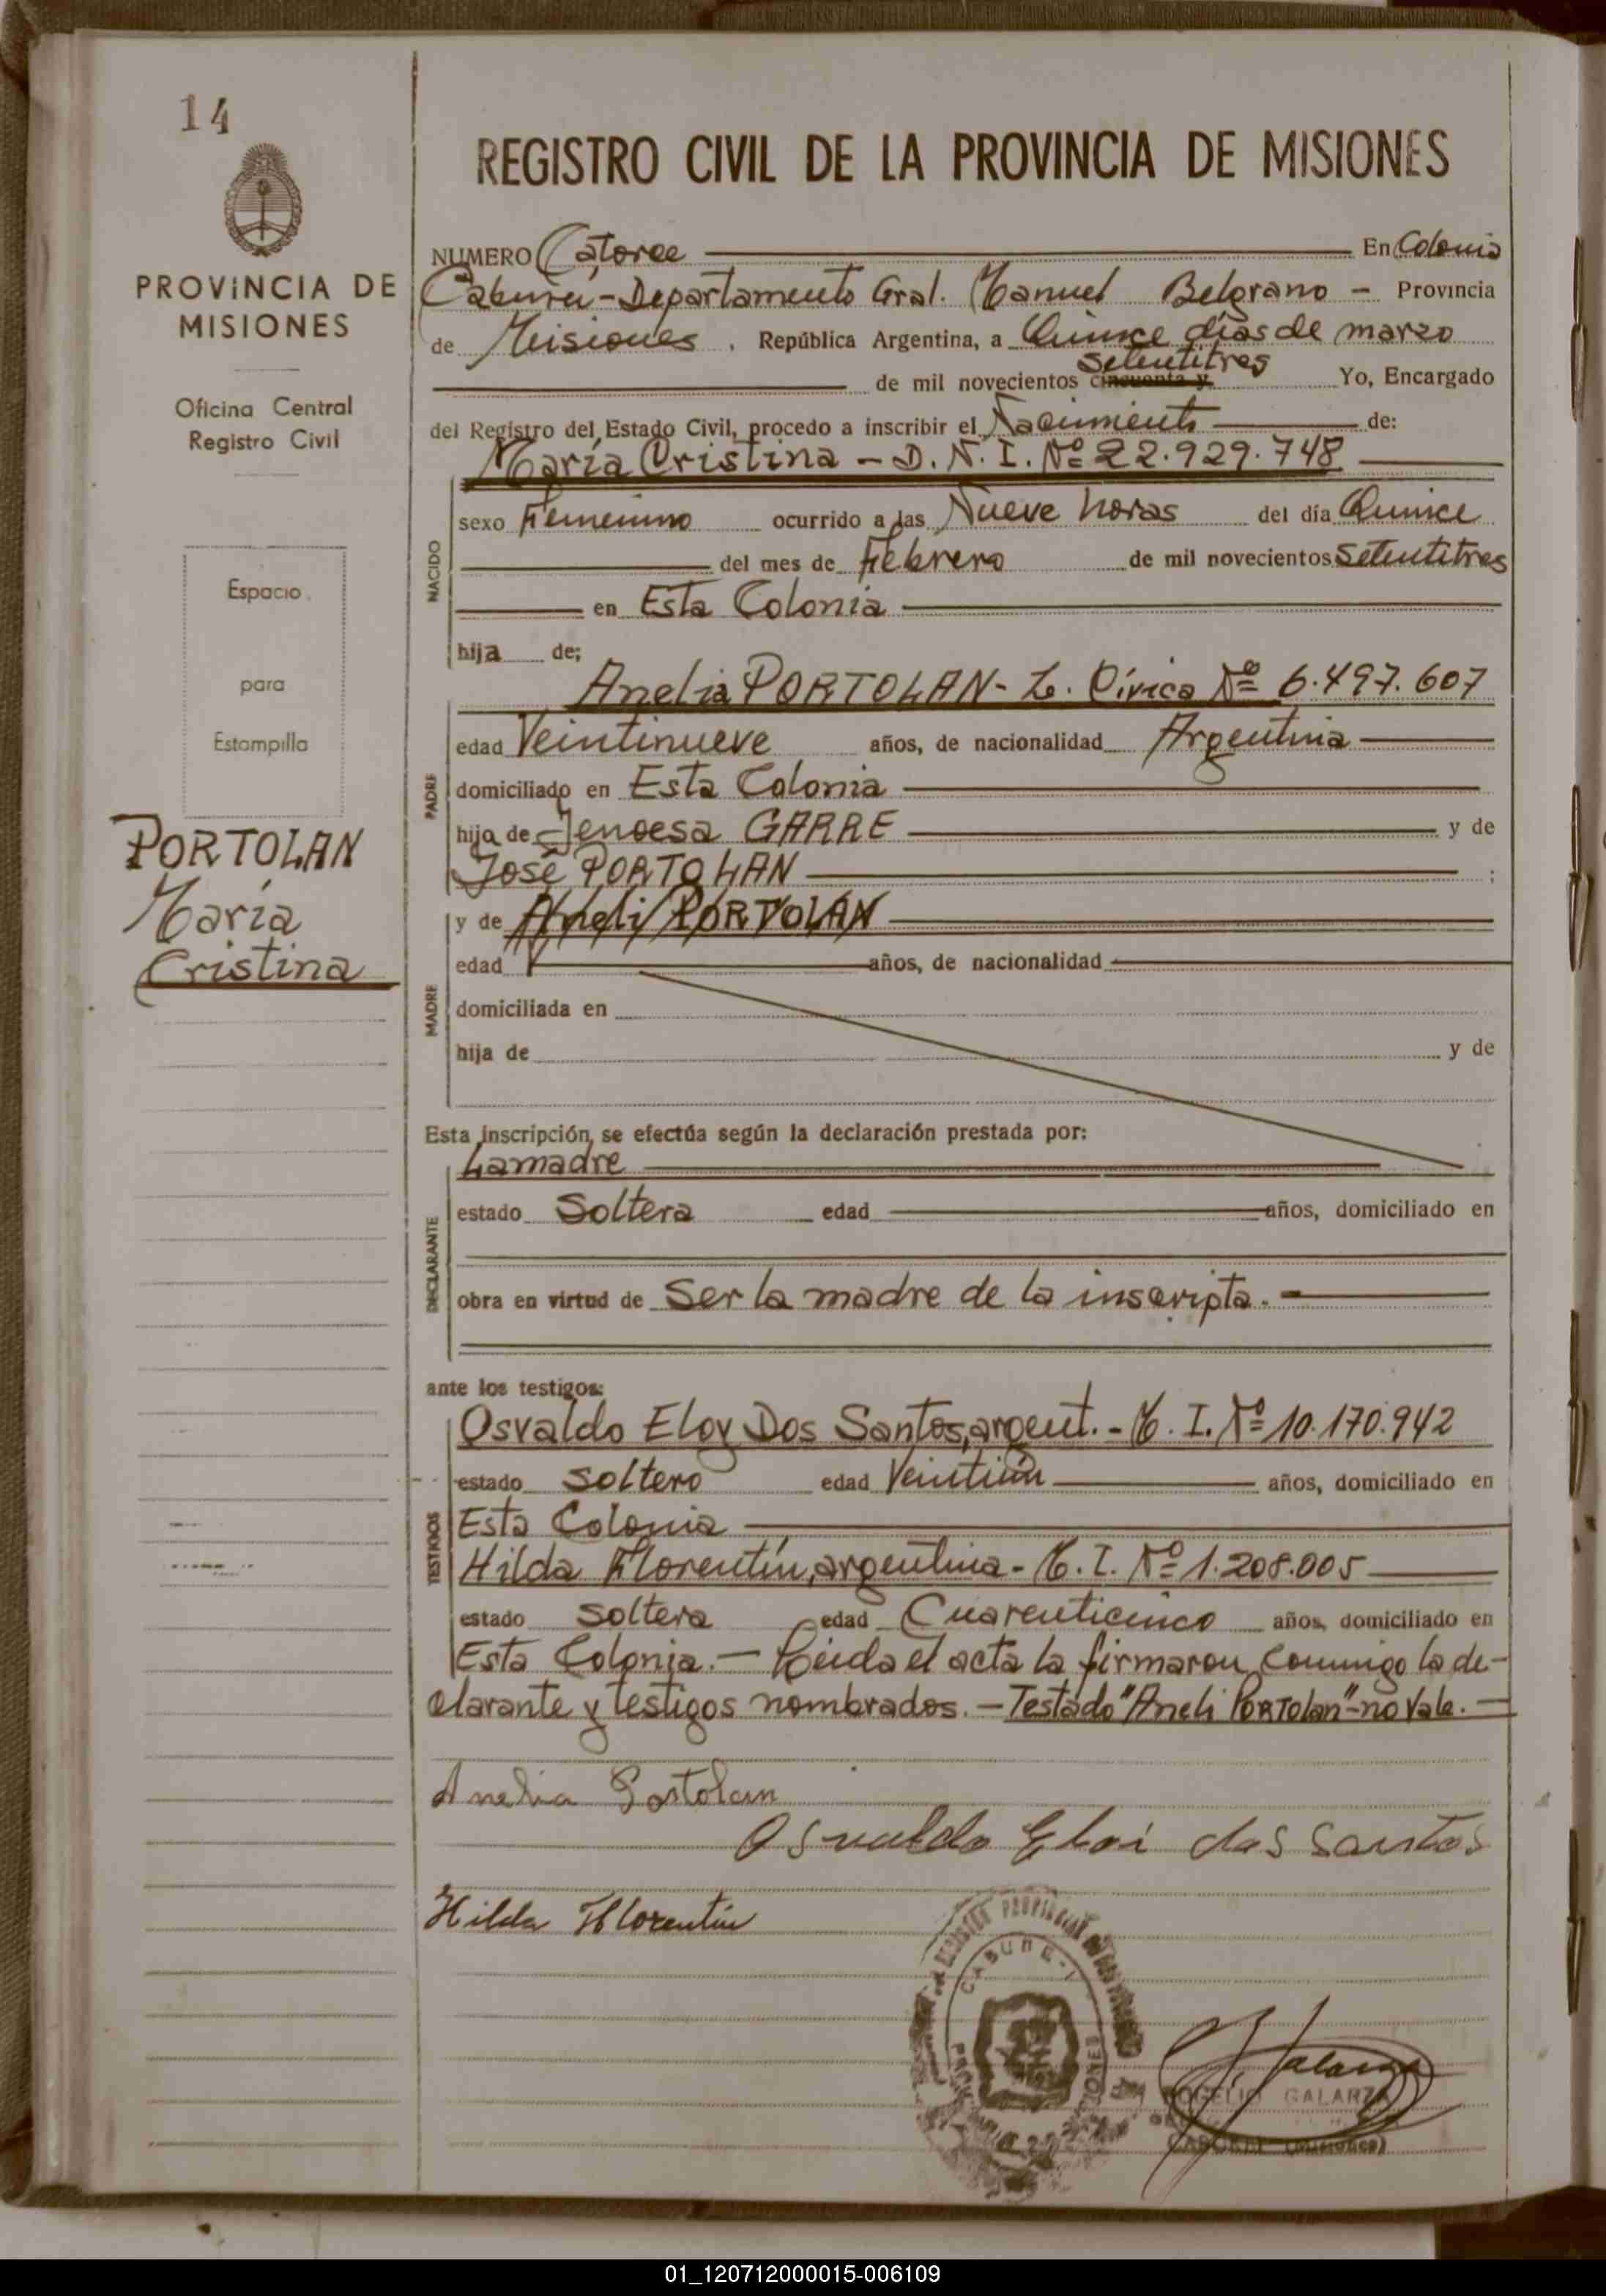 14
PROVINCIA DE
MISIONES
Oficina Central
Registro Civil
Espacio
para
Estampilla
PORTOLAN
María
Cristina
REGISTRO CIVIL DE LA PROVINCIA DE MISIONES
NUMERO Catorce En Colonia
Caburei - Departamento Gral. Manuel Belgrano - Provincia
de Misiones, República Argentina, a Quince días de marzo
setentitres
de mil novecientos cincuenta y Yo, Encargado
del Registro del Estado Civil, procedo a inscribir el Nacimiento de:
María Cristina - D. N. I. Nº 22.929.748
NACIDO
sexo Femenino ocurrido a las Nueve horas del día Quince
del mes de Febrero de mil novecientos setentitres
en Esta Colonia
hija de;
PADRE
Anelia PORTOLAN - L. Cívica Nº 6.497.607
edad Veintinueve años, de nacionalidad Argentina
domiciliado en Esta Colonia
hija de Jenoesa GARRE y de
José PORTOLAN ;
MADRE
y de Aneli PORTOLAN
edad años, de nacionalidad
domiciliada en
hija de y de
Esta inscripción se efectúa según la declaración prestada por:
DECLARANTE
La madre
estado Soltera edad años, domiciliado en
obra en virtud de Ser la madre de la inscripta.-
ante los testigos:
TESTIGOS
Osvaldo Eloy Dos Santos, argent. - M. I. Nº 10.170.942
estado soltero edad Veintiún años, domiciliado en
Esta Colonia
Hilda Florentín, argentina - M. I. Nº 1.208.005
estado soltera edad Cuarenticinco años, domiciliado en
Esta Colonia.- Leída el acta la firmaron conmigo la de-
clarante y testigos nombrados.- Testado "Aneli Portolan" - no Vale.-
Anelia Portolan
Osvaldo Eloi dos Santos
Hilda Florentín
CABURE-I
MISIONES
Galarza
ROGELIO GALARZA
CABUREI (Misiones)
01_120712000015-006109